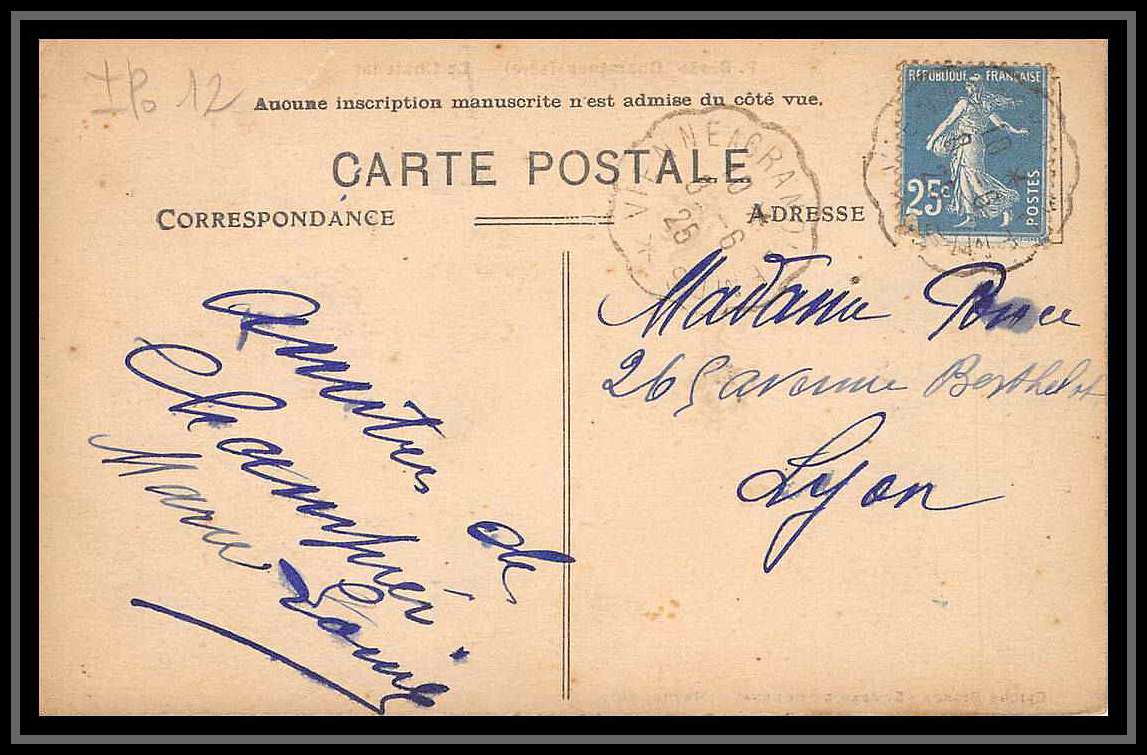 IPo 12
Aucune inscription manuscrite n'est admise du côté vue.
CARTE POSTALE
CORRESPONDANCE
ADRESSE
RÉPUBLIQUE FRANÇAISE
25c
POSTES
VIENNE
25
Amitiés de
Champier
Marie Louise
Madame Ponce
265 avenue Berthelot
Lyon